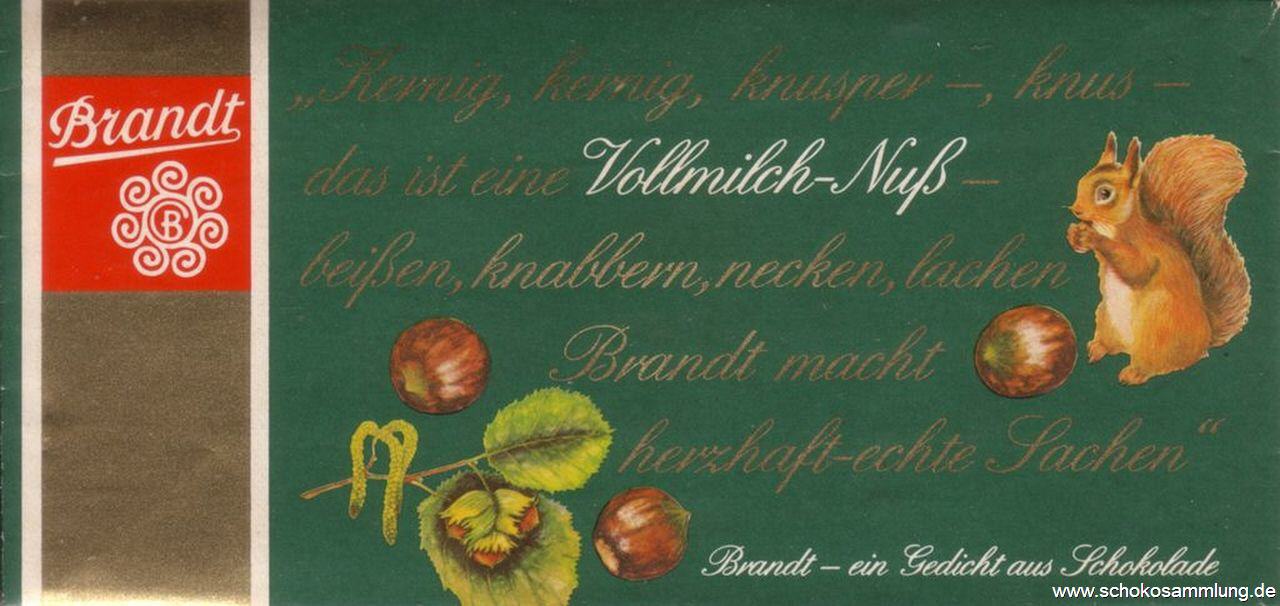 Brandt
B
„Kernig, kernig, knusper –, knus –
das ist eine Vollmilch-Nuß –
beißen, knabbern, necken, lachen
Brandt macht
herzhaft-echte Sachen“
Brandt – ein Gedicht aus Schokolade
www.schokosammlung.de